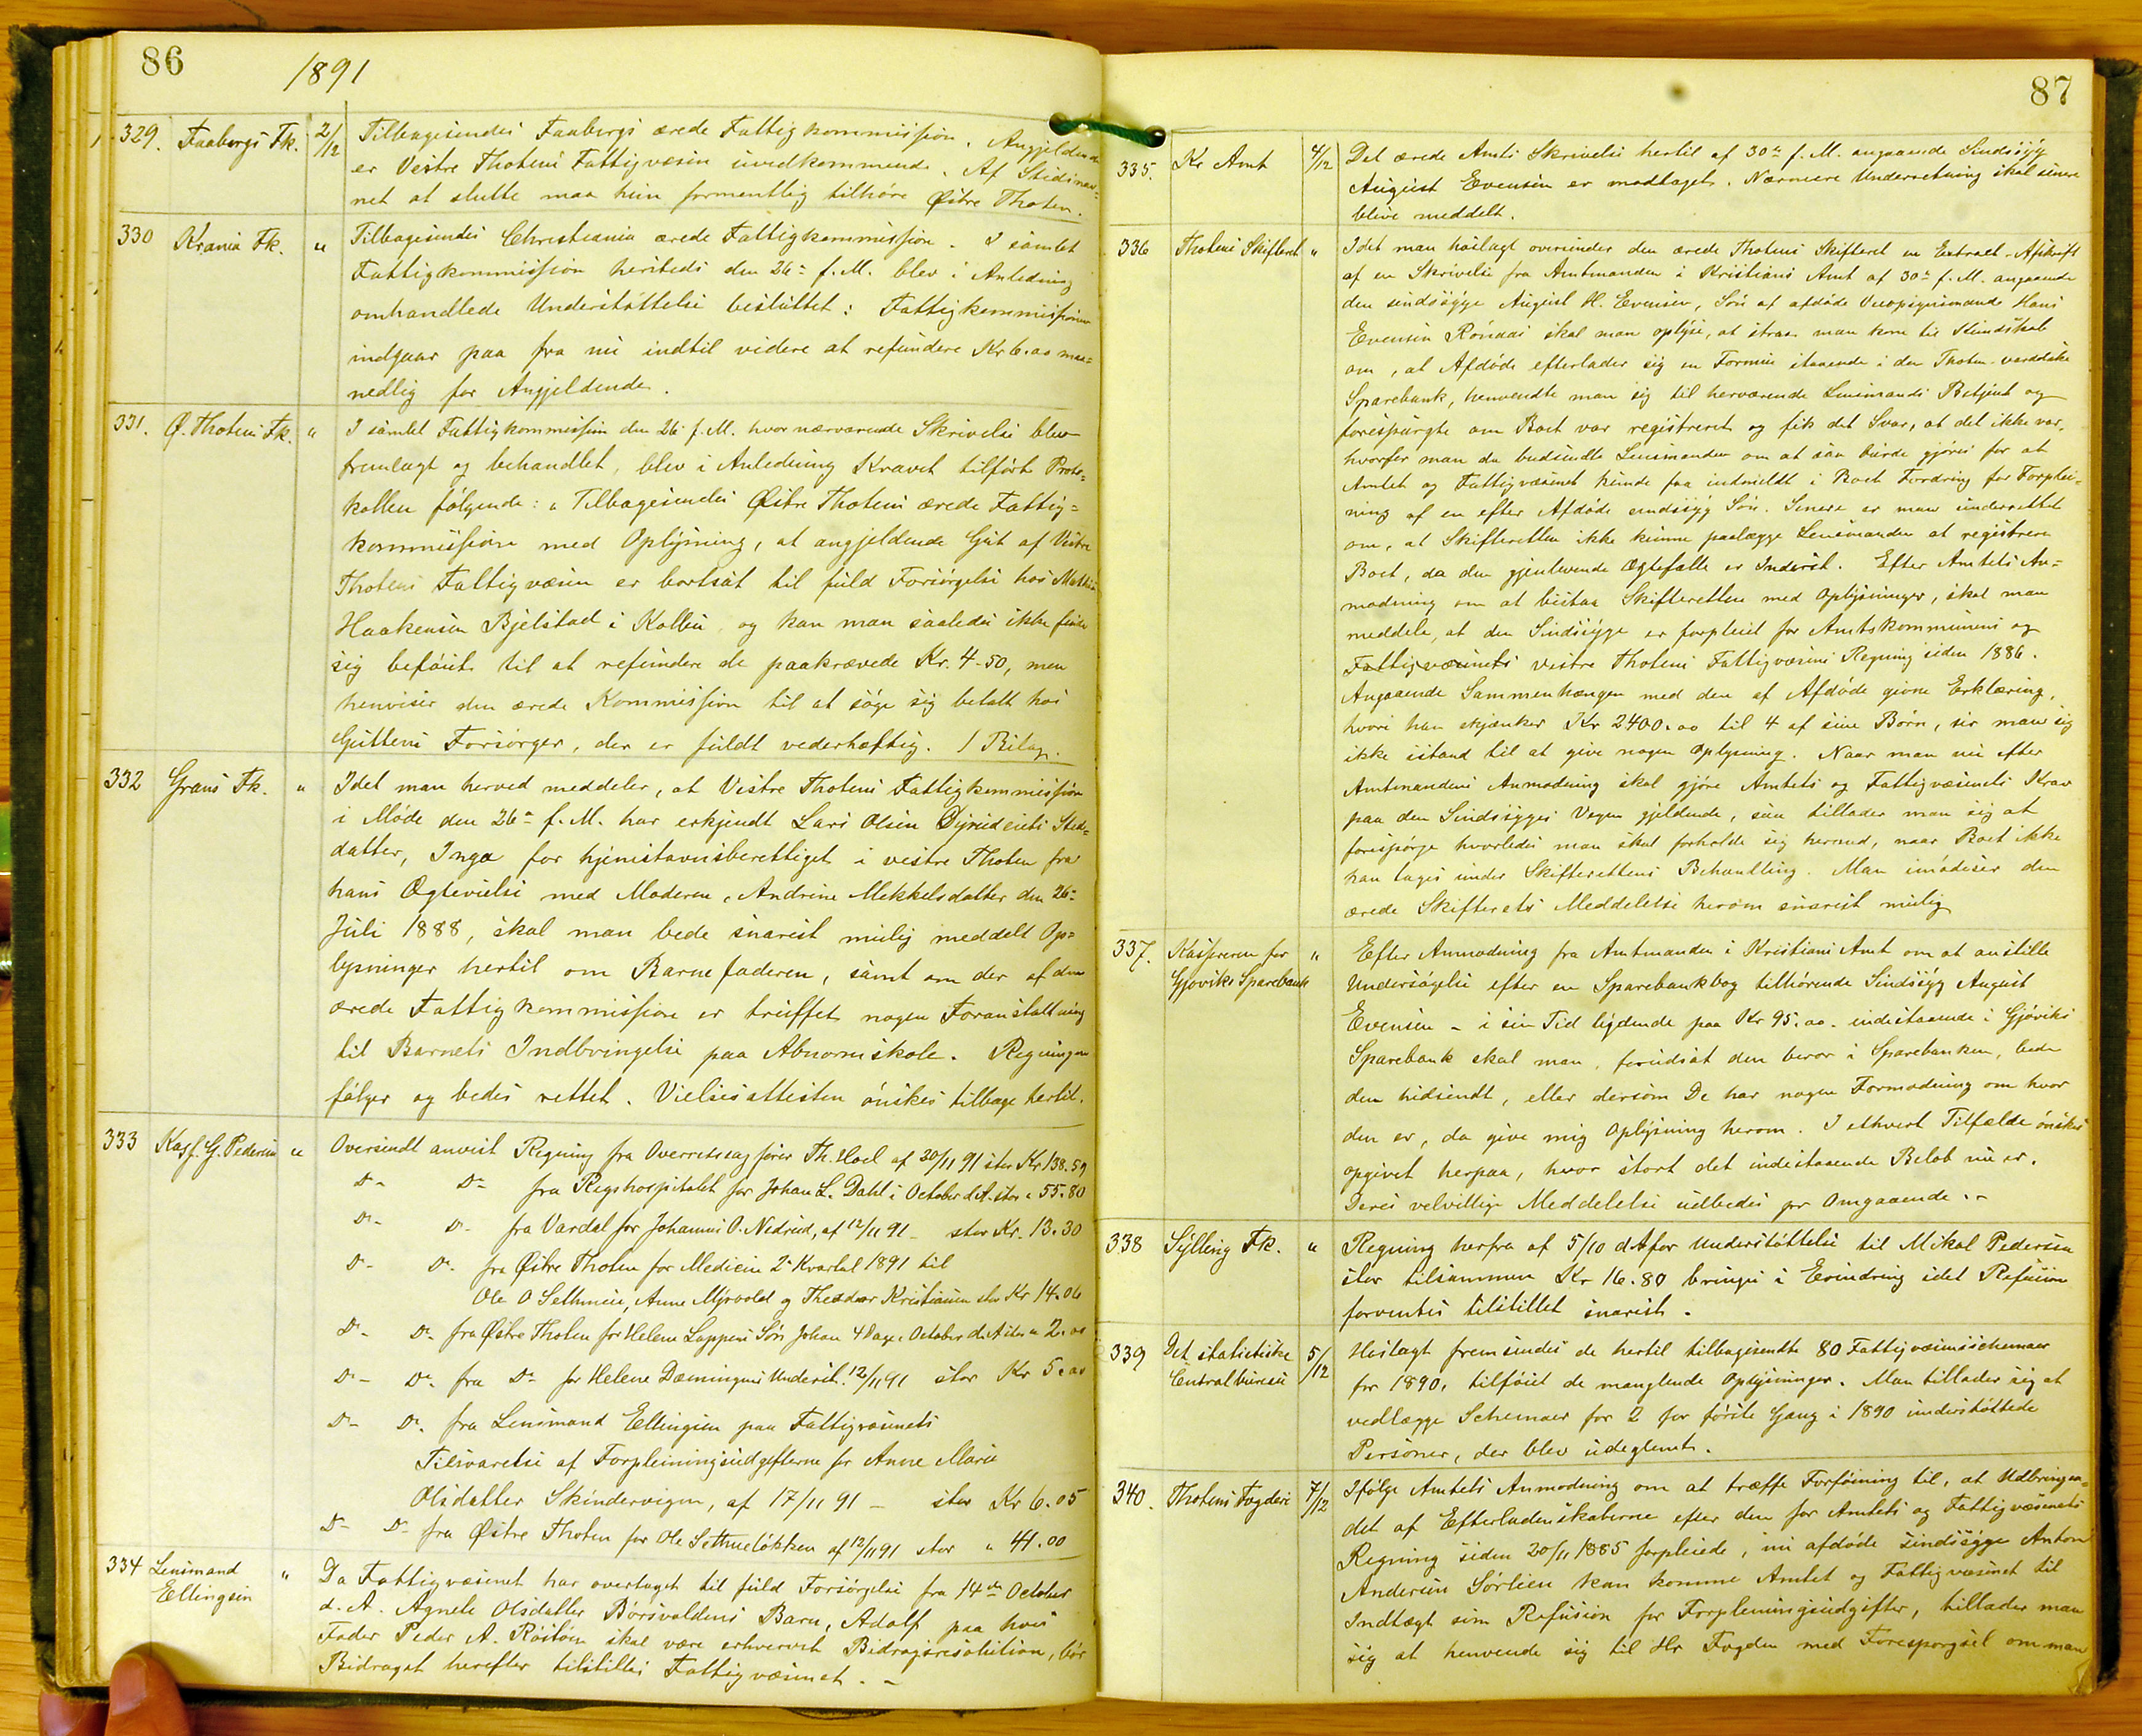 86
1891
329. Faabergs Fk. 2/12 Tilbagesendes Faabergs ærede Fattigkommission. Angjeldende
er Vestre Thotens Fattigvæsen uvedkommende. Af Stedsnav=
net at slutte maa hun formentlig tilhøre Østre Thoten.
330 Krania Fk. " Tilbagesendes Christiania ærede Fattigkommission. I samlet
Fattigkommission hersteds den 26= f. M. blev i Anledning
omhandlede Understøttelse besluttet: Fattigkommissionen
indgaar paa fra nu indtil videre at refundere Kr 6.00 maa=
nedlig for Angjeldende.
331. Ø. Thotens Fk. " I samlet Fattigkommission den 26 f. M. hvor nærværende Skrivelse blev
fremlagt og behandlet, blev i Anledning Kravet tilført Proto=
kollen følgende: "Tilbagesendes Østre Thotens ærede Fattig=
kommission med Oplysning, at angjeldende Gut af Vestre
Thotens Fattigvæsen er bortsat til fuld Forsørgelse hos
Haakensen Bjelstad i Kolbu, og kan man saaledes ikke finde
sig beføiet til at refundere de paakrævede Kr. 4-50, men
henviser den ærede Kommission til at søge sig betalt hos
Guttens Forsørger, der er fuldt vederhæftig. 1 Bilag.
332 Grans Fk. " Idet man herved meddeler, at Vestre Thotens Fattigkommission
i Møde den 26= f. M. har erkjendt Lars Olsen Sted=
datter, Inga for hjemstavnsberettiget i vestre Thoten fra
hans Ægtevielse med Moderen, Andrine Mekkelsdatter den 26=
Juli 1888, skal man bede snarest mulig meddelt Op=
lysninger hertil om Barnefaderen, samt om der af den
ærede Fattigkommission er truffet nogen Foranstaltning
til Barnets Indbringelse paa Abnormskole. Regningen
følger og bedes rettet. Vielsesattesten ønskes tilbage hertil.
333 Kass. G. Pedersen " Oversendt anvist Regning fra Overretssagfører Th. Hoel af 30/11 91 stor Kr 138.59
Do- Do- fra Rigshospitalet for Johan L. Dahl i October d. A. stor " 55.80
Do- Do- fra Vardal for Johannes O. Nedrud, af 12/11 91 - stor Kr. 13.30
Do- Do- fra Østre Thoten for Medicin 2= Kvartal 1891 til
Ole O Sethmeie, Anne Myrvold og Theodor Kristiansen stor Kr 14.06
Do- Do- fra Østre Thoten for Helene Lappens Søn Johan 4 Dage i October d. A stor " 2.00
Do- Do- fra Do for Helene Dæmingens Underst. 12/11 91 stor Kr 5.00
Do- Do. fra Lensmand Ellingsen paa Fattigvæsenets
Tilsvarelse af Forpleiningsudgifterne for Anne Marie
Olsdatter Skindervigen, af 17/11 91 - stor Kr 6.05
Do- Do- fra Østre Thoten for Ole Sethueløkken af 12/11 91 stor " 41.00
334 Lensmand Ellingsen " Da Fattigvæsenet har overtaget til fuld Forsørgelse fra 14de October
d. A. Agnete Olsdatter Børsvoldens Barn, Adolf paa hvis
Fader Peder A. Røstøen skal være erhvervet Bidragsresolution, bør
Bidraget herefter tilstilles Fattigvæsenet. -
87
335. Kr Amt 4/12 Det ærede Amts Skrivelse hertil af 30= f. M. angaaende Sindssyg
August Evensen er modtaget. Nærmere Underretning skal senere
blive meddelt.
336 Thotens Skifteret " Idet man høilagt oversender den ærede Thotens Skifteret en Extract-Afskrift
af en Skrivelse fra Amtmanden i Kristians Amt af 30= f. M. angaaende
den sindssyge August H. Evensen, Søn af afdøde Hans
Evensen Rønaas skal man oplyse, at strax man kom til Kundskab
om, at Afdøde efterlader sig en Formue staaende i den Thoten-vardalske
Sparebank, henvendte man sig til herværende Lensmands Betjent og
forespurgte om Boet var registreret og fik det Svar, at det ikke var,
hvorfor man da budsendte Lensmanden om at saa burde gjøres for at
Amtet og Fattigvæsenet kunde faa indmeldt i Boet Fordring for Forplei=
ning af en efter Afdøde sindssyg Søn. Senere er man underrettet
om, at Skifteretten ikke kunne paalægge Lensmanden at registrere
Boet, da den gjenlevende Ægtefælle er Inderst. Efter Amtets An=
modning om at bistaa Skifteretten med Oplysninger, skal man
meddele, at den Sindssyge er forpleiet for Amtskommunens og
Fattigvæsenets vestre Thotens Fattigvæsens Regning siden 1886.
Angaaende Sammenhængen med den af Afdøde givne Erklæring,
hvori han skjænker Kr 2400.00 til 4 af sine Børn, ser man sig
ikke istand til at give nogen Oplysning. Naar man nu efter
Amtmandens Anmodning skal gjøre Amtets og Fattigvæsenets Krav
paa den Sindssyges Vegne gjeldende, saa tillader man sig at
forespørge hvorledes man skal forholde sig hermed, naar Boet ikke
kan tages under Skifterettens Behandling. Man imødeser den
ærede Skifterets Meddelelse herom snarest mulig
337. Kassereren for Gjøviks Sparebank " Efter Anmodning fra Amtmanden i Kristians Amt om at anstille
Undersøgelse efter en Sparebankbog tilhørende Sindssyg August
Evensen - i sin Tid lydende paa Kr 95.00. indestaaende i Gjøviks
Sparebank skal man, forudsat den beror i Sparebanken, bede
den hidsendt, eller dersom De har nogen Formodning om hvor
den er, da give mig Oplysning herom. I ethvert Tilfælde ønskes
opgivet herpaa, hvor stort det indestaaende Beløb nu er.
Deres velvillige Meddelelse udbedes pr Omgaaende. -
338 Sylling Fk. " Regning herfra af 5/10 d A for Understøttelse til Mikal Pedersen
stor tilsammen Kr 16.80 bringes i Erindring idet Refusion
forventes tilstillet snarest.
339 Det statistiske Centralbureau 5/12 Høilagt fremsendes de hertil tilbagesendte 80 Fattigvæsensschemaer
for 1890, tilføiet de manglende Oplysninger. Man tillader sig at
vedlægge Schemaer for 2 for første Gang i 1890 understøttede
Personer, der blev udeglemt.
340. Thotens Fogderi 7/12 Ifølge Amtets Anmodning om at træffe Forføining til, at Udbringen=
det af Efterladenskaberne efter den for Amtets og Fattigvæsenets
Regning siden 20/11 1885 forpleiede, nu afdøde sindssyge Anton
Andersen Sørlien kan komme Amtet og Fattigvæsenet til
Indtægt som Refusion for Forpleningsudgifter, tillader man
sig at henvende sig til Hr Fogden med Forespørgsel om man